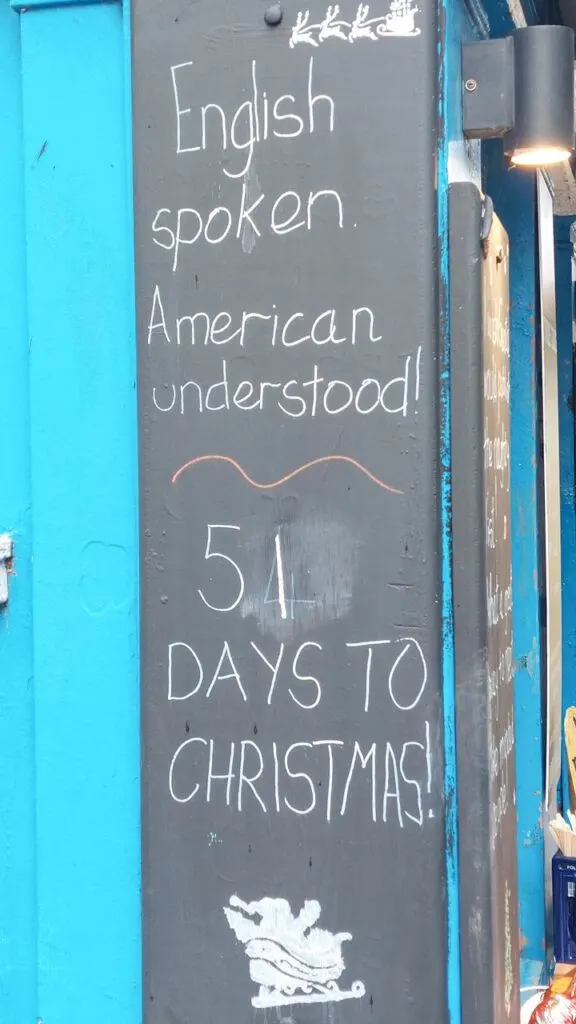 English
spoken.
American
understood!
51
DAYS TO
CHRISTMAS!